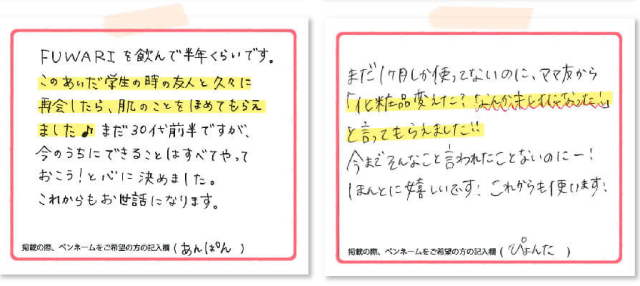 FUWARIを飲んで半年くらいです。
このあいだ学生の時の友人と久々に
再会したら、肌のことをほめてもらえ
ました♪まだ30代前半ですが、
今のうちにできることはすべてやって
おこう!と心に決めました。
これからもお世話になります。
掲載の際、ペンネームをご希望の方の記入欄(あんぱん)
まだ1ヶ月しか使ってないのに、ママ友から
「化粧品変えた?なんかきれいになった!」
と言ってもらえました!!
今までそんなこと言われたことないのにー!
ほんとに嬉しいです!これからも使います!
掲載の際、ペンネームをご希望の方の記入欄(ぴょんた)